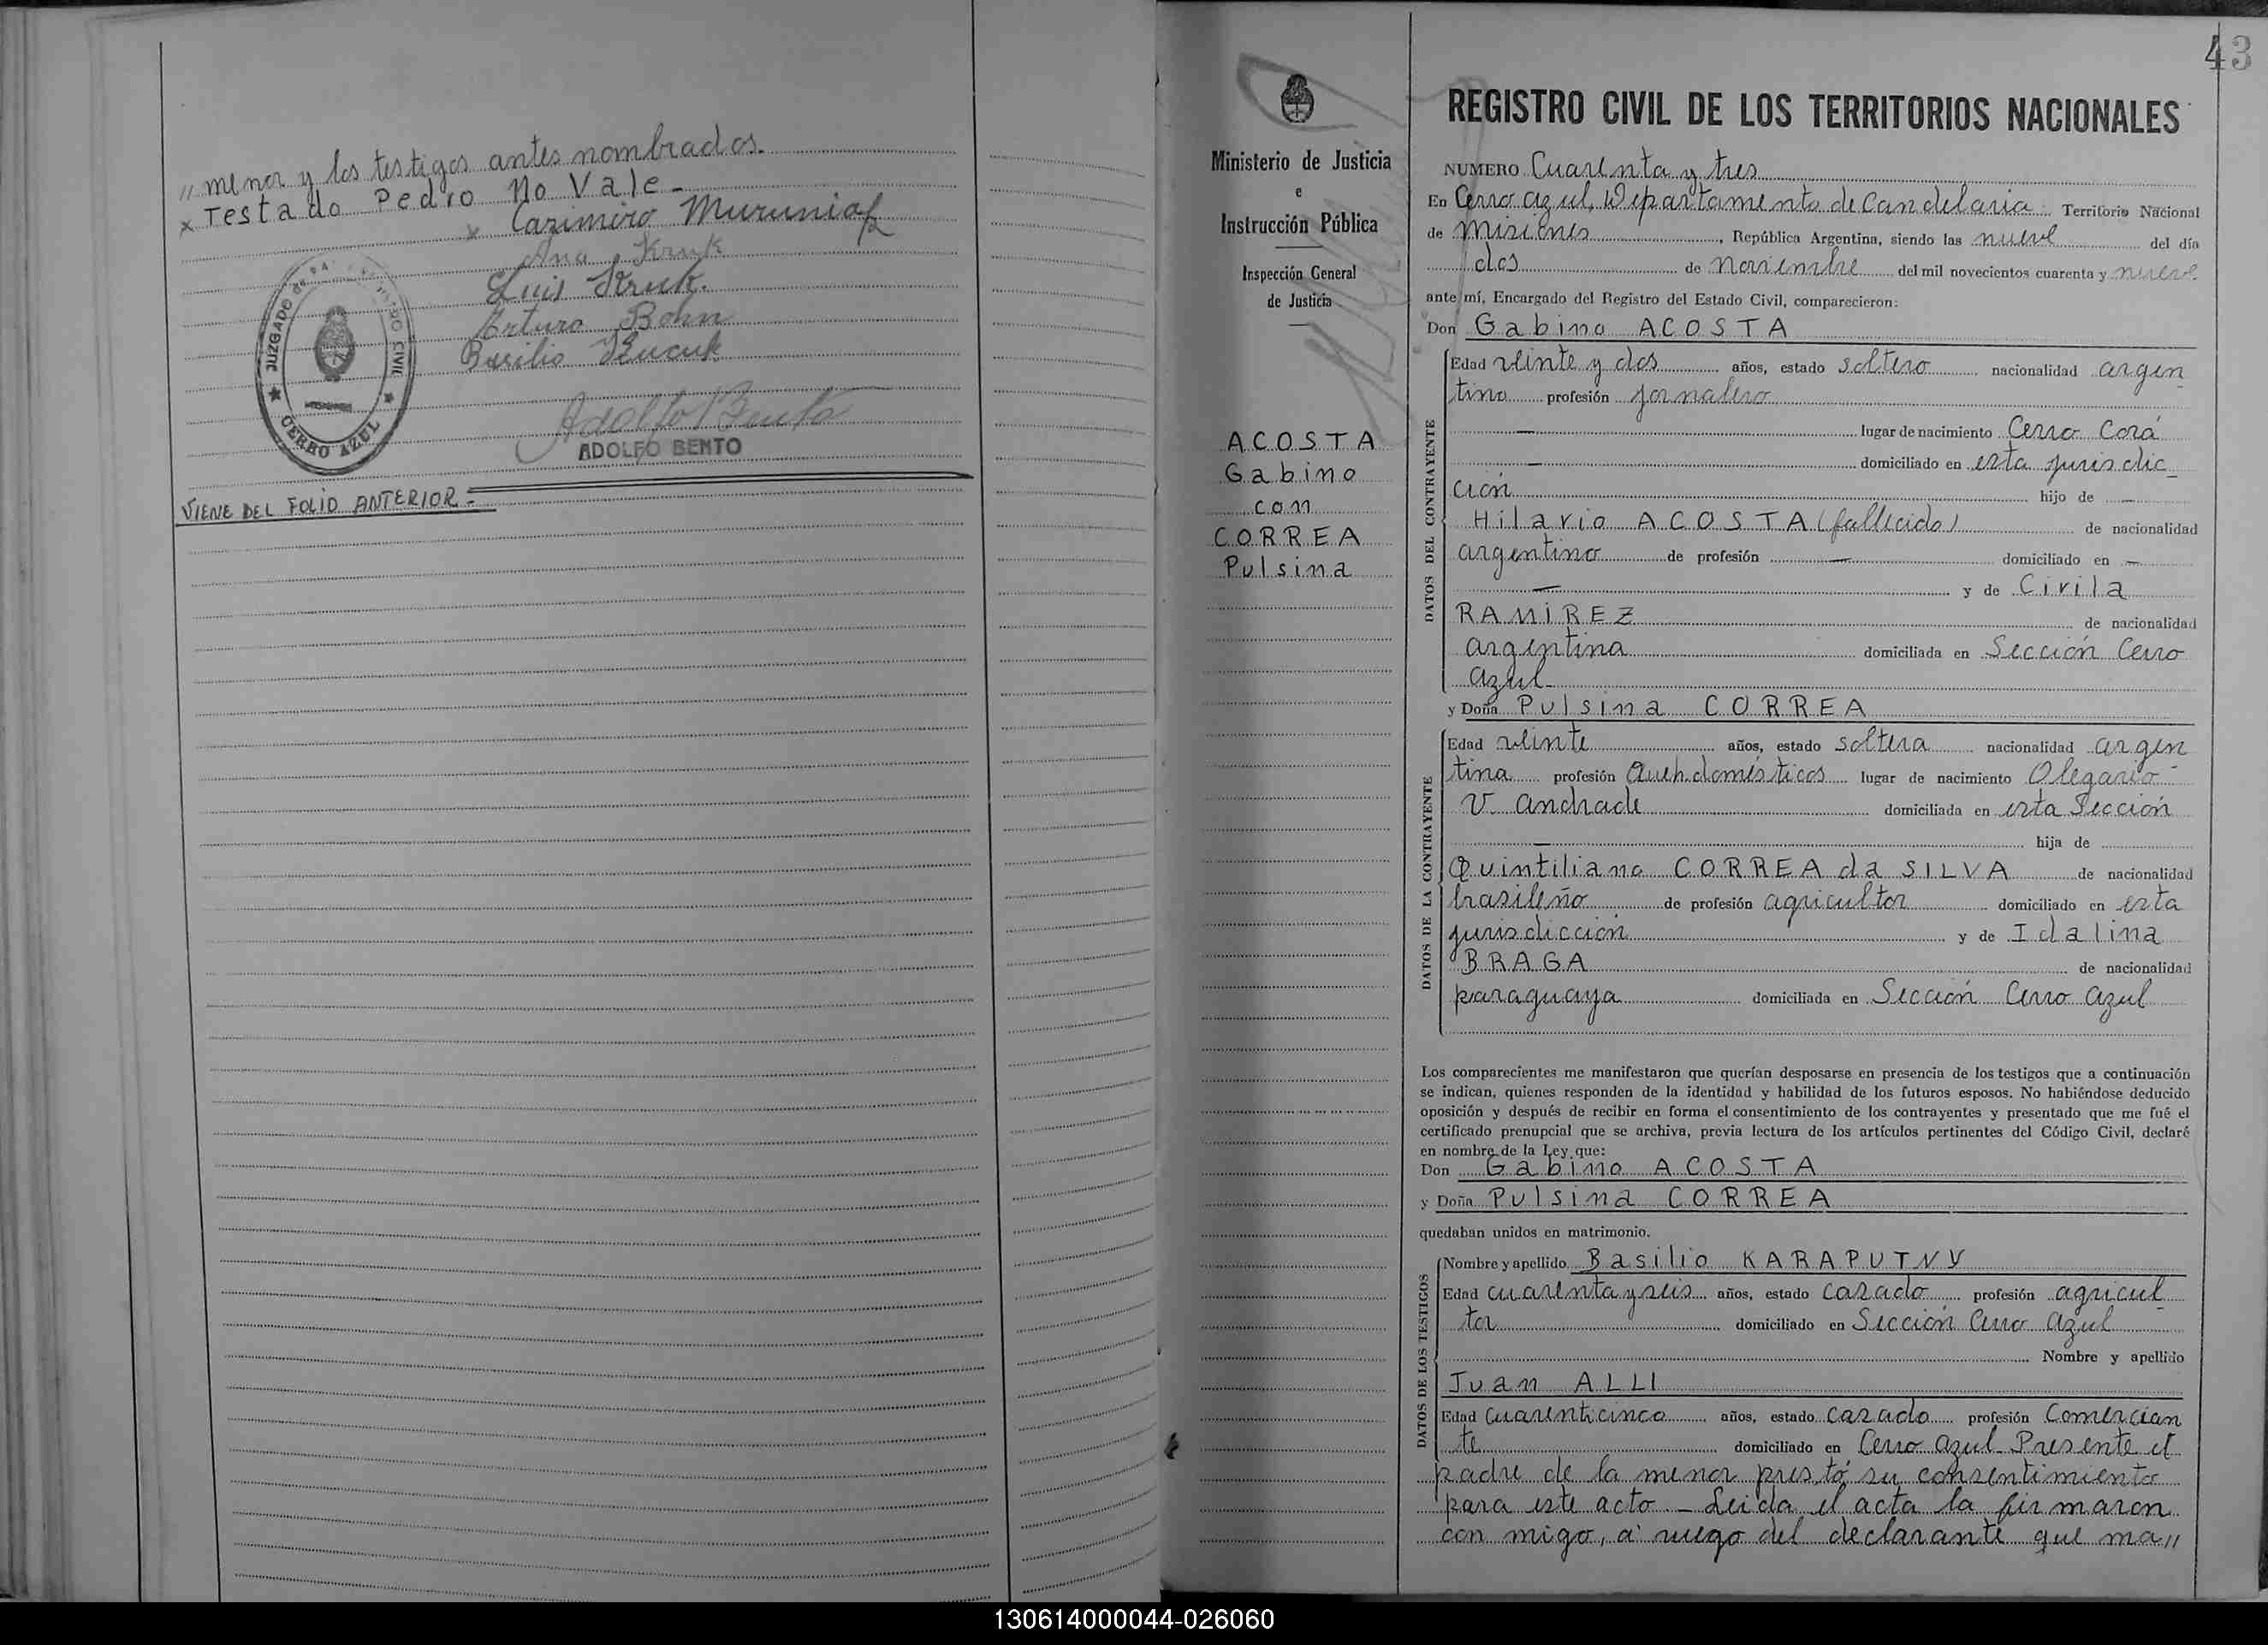 " menor y los testigos antes nombrados.
x Testado Pedro No Vale -
x Cazimiro Muruniak
Ana Kruk
Luis Kruk.
Arturo Bohn
Basilio
Adolfo Bento
ADOLFO BENTO
JUZGADO DE PAZ REGISTRO CIVIL
CERRO AZUL
VIENE DEL FOLIO ANTERIOR.-
43
Ministerio de Justicia
e
Instrucción Pública
Inspección General
de Justicia
ACOSTA
Gabino
con
CORREA
Pulsina
REGISTRO CIVIL DE LOS TERRITORIOS NACIONALES
NUMERO Cuarenta y tres
En Cerro Azul, Departamento de Candelaria Territorio Nacional
de Misiones, República Argentina, siendo las nueve del día
dos de Noviembre del mil novecientos cuarenta y nueve
ante mí, Encargado del Registro del Estado Civil, comparecieron:
Don Gabino ACOSTA
DATOS DEL CONTRAYENTE
Edad veinte y dos años, estado soltero nacionalidad argen
tino profesión jornalero
— lugar de nacimiento Cerro Corá
— domiciliado en esta jurisdic_
ción hijo de —
Hilario ACOSTA (fallecido) de nacionalidad
argentino de profesión — domiciliado en —
— y de Civila
RAMIREZ de nacionalidad
argentina domiciliada en Sección Cerro
Azul
y Doña Pulsina CORREA
DATOS DE LA CONTRAYENTE
Edad veinte años, estado soltera nacionalidad argen
tina profesión Queh. domésticos lugar de nacimiento Olegario
V. Andrade domiciliada en esta Sección
— hija de
Quintiliano CORREA da SILVA de nacionalidad
brasileño de profesión agricultor domiciliado en esta
jurisdicción y de Idalina
BRAGA de nacionalidad
paraguaya domiciliada en Sección Cerro Azul
Los comparecientes me manifestaron que querían desposarse en presencia de los testigos que a continuación
se indican, quienes responden de la identidad y habilidad de los futuros esposos. No habiéndose deducido
oposición y después de recibir en forma el consentimiento de los contrayentes y presentado que me fué el
certificado prenupcial que se archiva, previa lectura de los artículos pertinentes del Código Civil, declaré
en nombre de la Ley que:
Don Gabino ACOSTA
y Doña Pulsina CORREA
quedaban unidos en matrimonio.
DATOS DE LOS TESTIGOS
Nombre y apellido Basilio KARAPUTNY
Edad cuarenta y seis años, estado casado profesión agricul_
tor domiciliado en Sección Cerro Azul
Nombre y apellido
Juan ALLI
Edad cuarenticinco años, estado casado profesión Comercian
te domiciliado en Cerro Azul Presente el
padre de la menor prestó su consentimiento
para este acto - Leida el acta la firmaron
con migo, a ruego del declarante que ma"
130614000044-026060